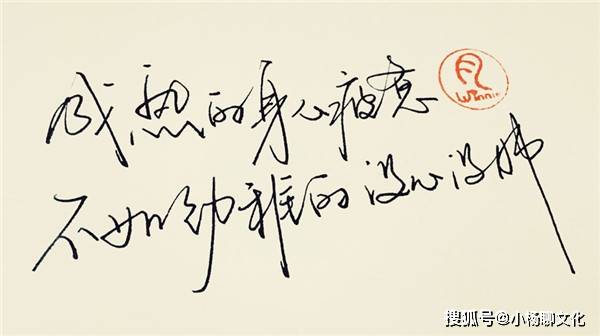 成熟的身心疲惫
Winnie
不如幼稚的没心没肺
搜狐号@小杨聊文化